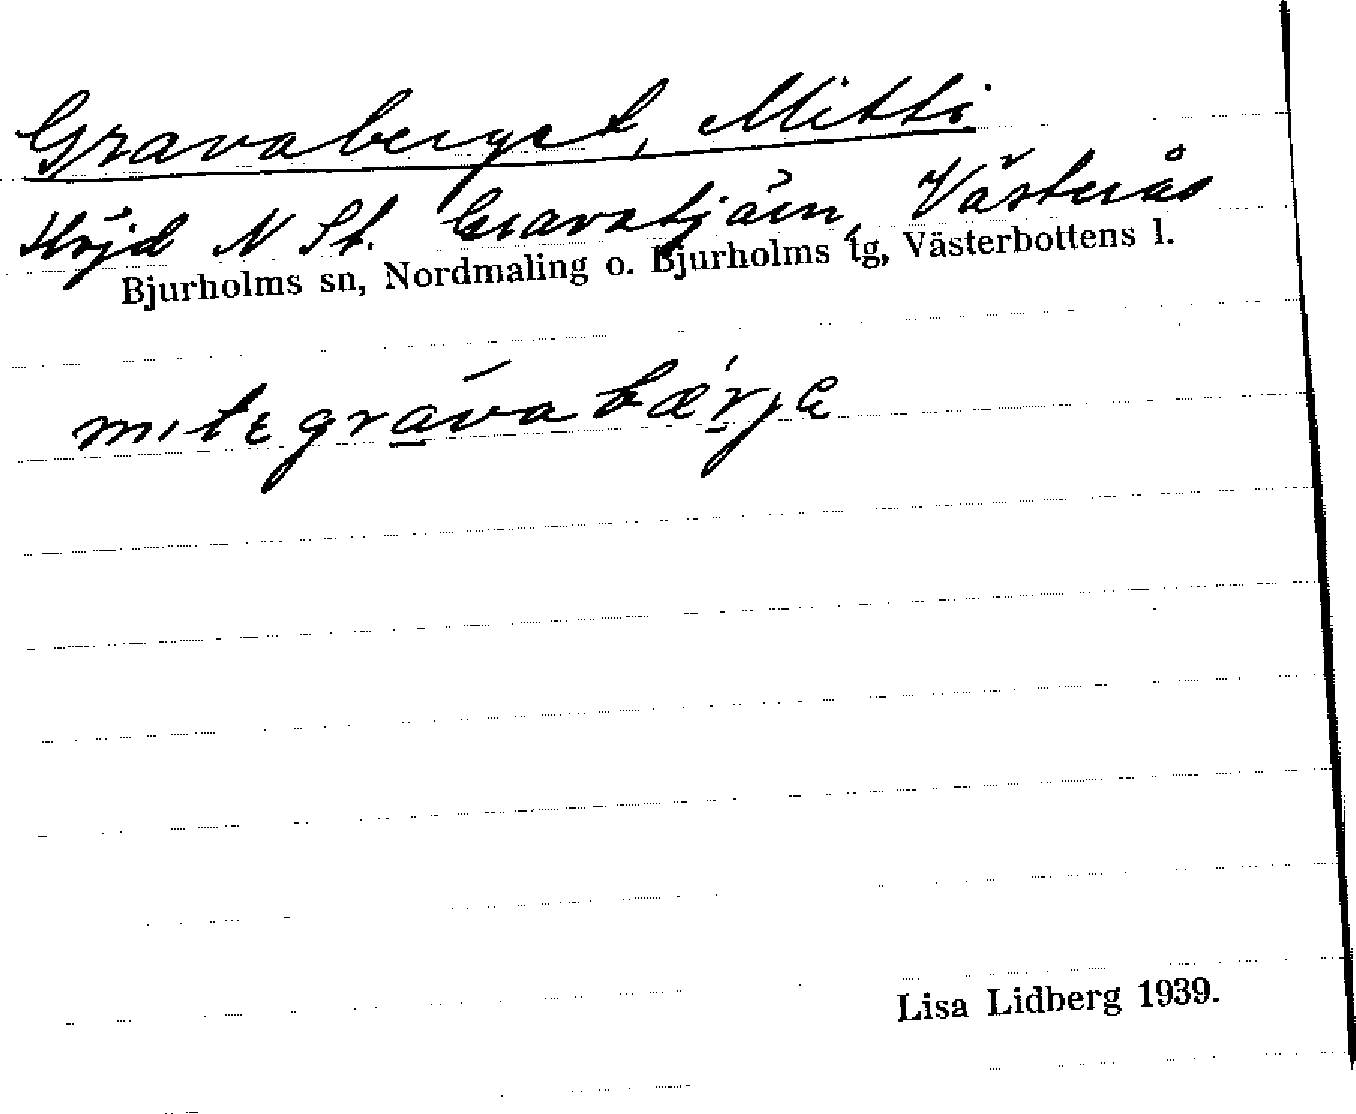 Gravaberget, Mitti
Höjd N St. Gravatjärn, Västerås
Bjurholms sn, Nordmaling o. Bjurholms tg, Västerbottens l.
mıtɛ gra̲va bær̲jɛ
Lisa Lidberg 1939.